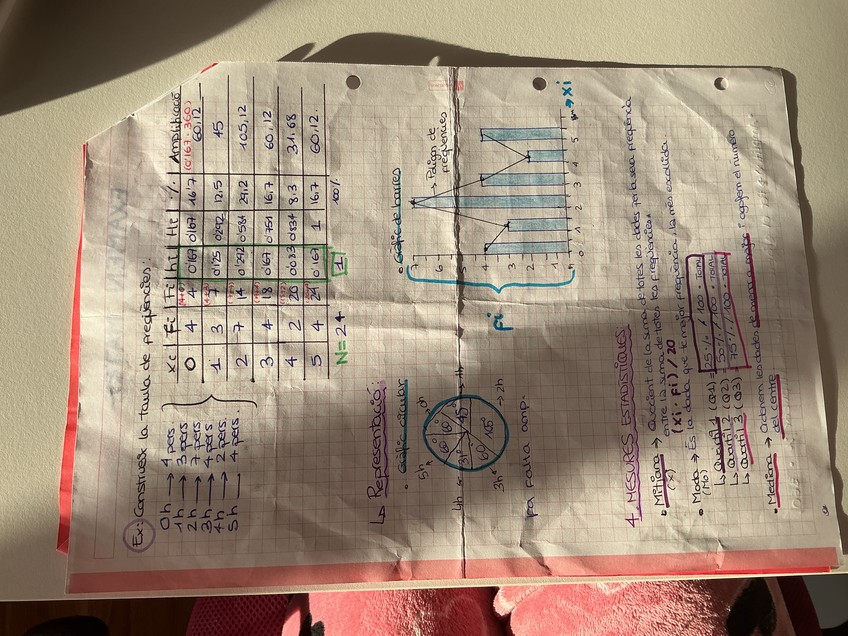 Ex: Construeix la taula de freqüències:
0h → 4 pers.
1h → 3 pers
2h → 7 pers
3h → 4 pers
4h → 2 pers
5h — 4 pers.
Xi | fi | Fi | hi | Hi | % | Amplificació
(0'167·360)
0 4 4 0'167 0'167 16'7 60,12
1 3 7 0'125 0'292 12'5 45
2 7 14 0'292 0'584 29,2 105,12
3 4 18 0'167 0'751 16,7 60,12
4 2 20 0'083 0'834 8'3 31,68
5 4 24 0'167 1 16,7 60,12.
N= 24 1 100%
↳ Representació:
• Gràfic circular
0h
1h
2h
3h
4h
5h
60° 45° 105° 60° 31° 60°
• Gràfic de barres
→ Polígon de
freqüències
Fi
6
5
4
3
2
1
h
0 1 2 3 4 5 → Xi
4. MESURES ESTADÍSTIQUES
• Mitjana → Quocient de la suma de totes les dades per la seva freqüència
(x̄) entre la suma de totes les freqüències.
(Xi · Fi) / 20
• Moda → És la dada que té major freqüència, la més escollida.
(Mo)
↳ Quartil 1 (Q1) = 25% / 100 · TOTAL
↳ Quartil 2 (Q2) = 50% / 100 · TOTAL
↳ Quartil 3 (Q3) 75% / 100 · TOTAL
• Mediana → Ordenem les dades de menor a major i agafem el número
del centre